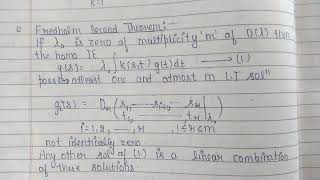 K=1
Fredholm Second Theorem:-
If λ₀ is zero of multiplicity 'm' of D(λ) then
the homo IE
g(s) = λ₀ ∫ k(s,t) g(t) dt → (1.)
posses atleast one and atmost m L.I solⁿ
gᵢ(s) = Dᵣ ( s₁, ... sᵢ₊₁, ... sᵣ
t₁, ... tᵣ | )
i=1,2, ..., r , 1≤r≤m
not identically zero.
Any other sol of (1.) is a linear combination
of these solutions.